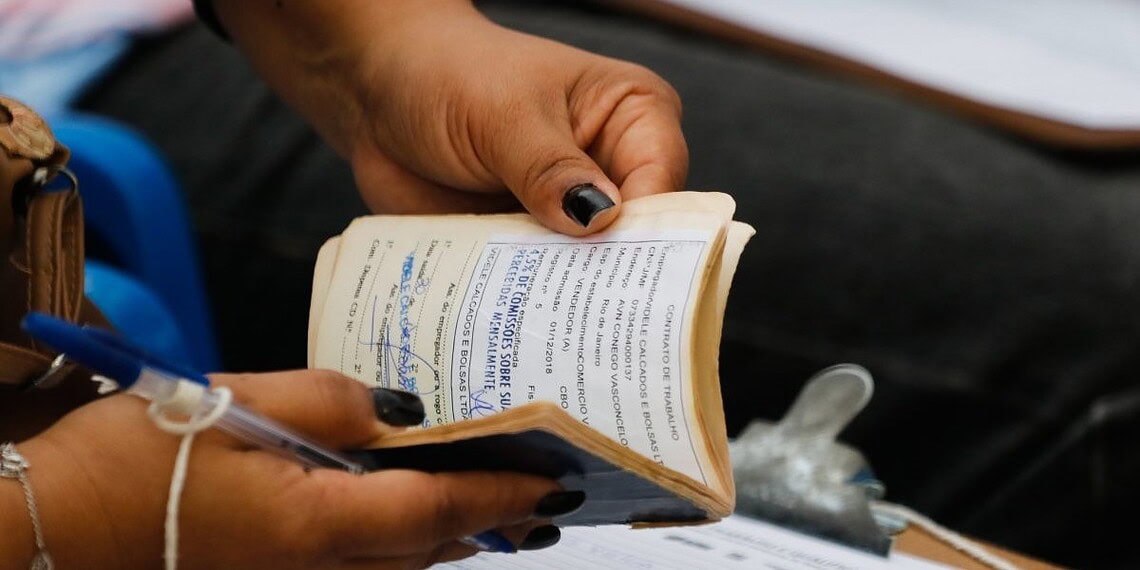 CONTRATO DE TRABALHO
Empregador VIDELE CALÇADOS E BOLSAS LT
CNPJ/MF 07334294000137
Endereço AVN CONEGO VASCONCELO
Município Rio de Janeiro
Esp. do estabelecimento COMERCIO V
Cargo VENDEDOR (A)
CBO
Data admissão 01/12/2018
Registro nº 5 Fis
Remuneração especificada
4,5% DE COMISSÕES SOBRE SUA
PERCEBIDAS MENSALMENTE
VIDELE CALÇADOS E BOLSAS LTDA
Ass. do empregador ou a rogo c
1º 2º
Data saída de
VIDELE CALÇADOS
Ass. do empregador ou
1º 2º
Com. Dispensa CD Nº